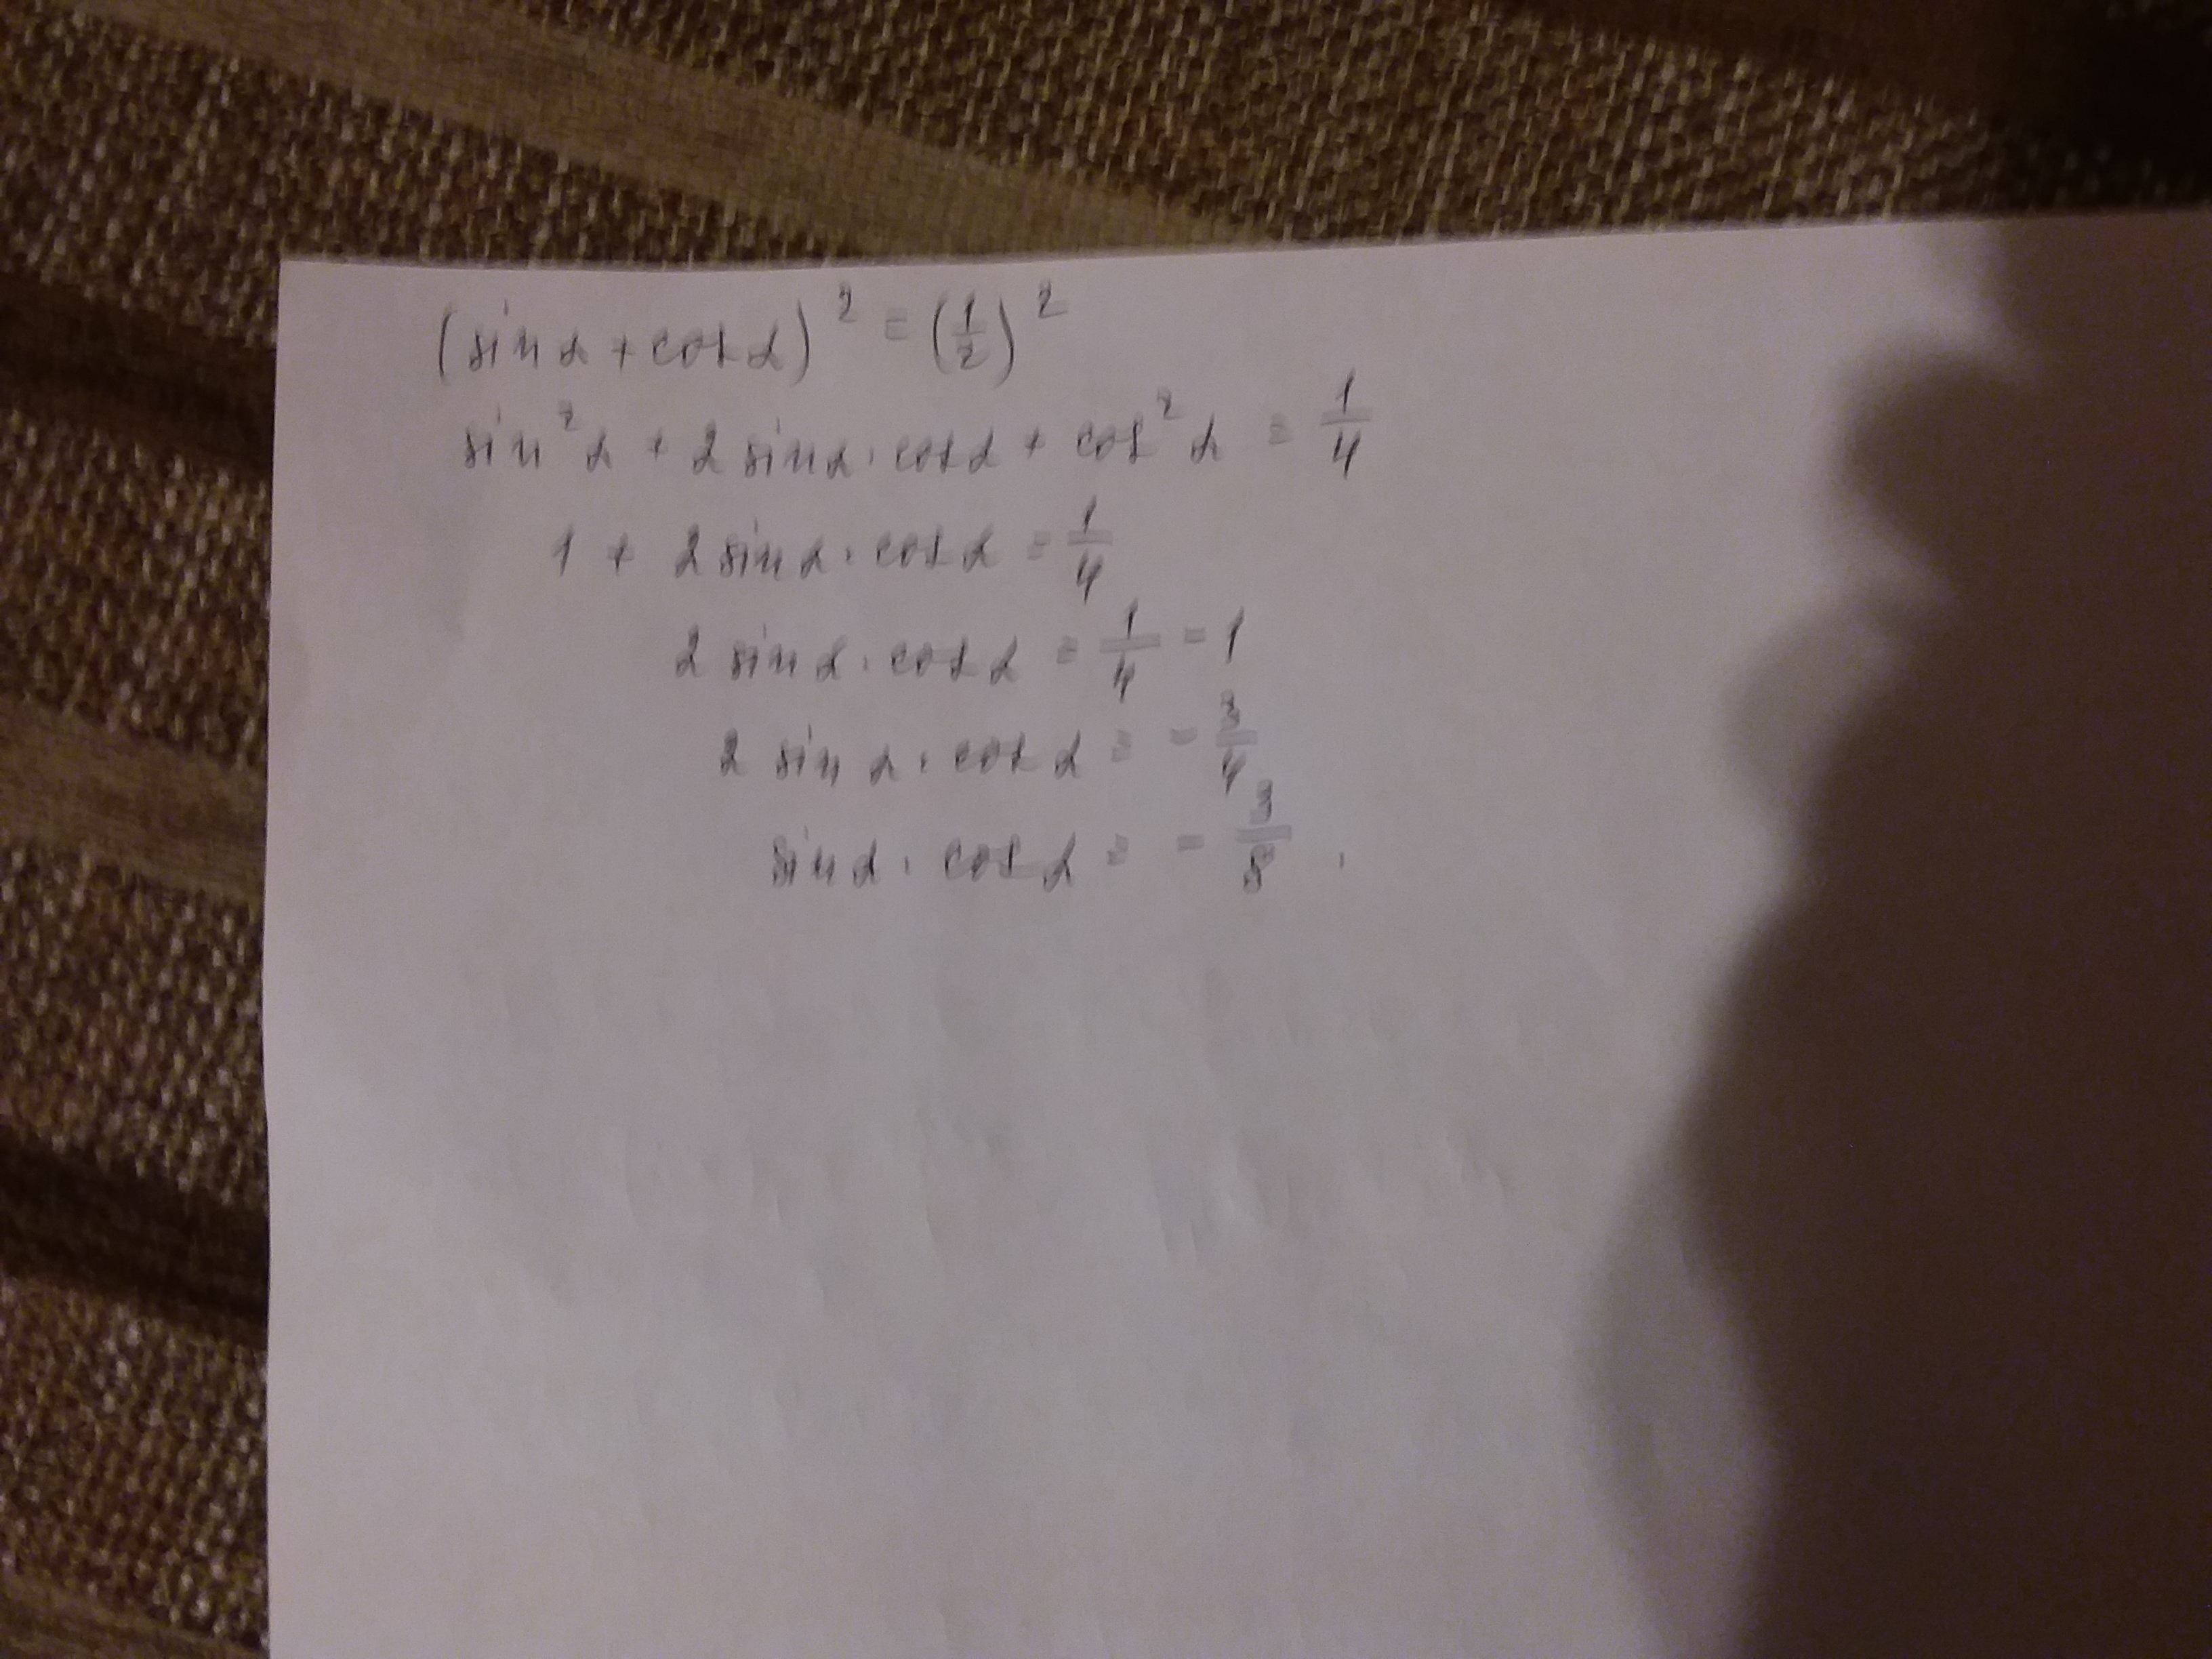 (sin α + cos α)² = (1/2)²
sin² α + 2 sin α · cos α + cos² α = 1/4
1 + 2 sin α · cos α = 1/4
2 sin α · cos α = 1/4 - 1
2 sin α · cos α = - 3/4
sin α · cos α = - 3/8 .